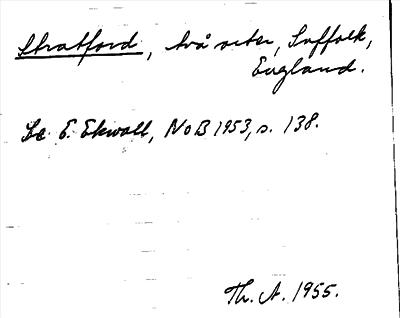 Stratford, två orter, Suffolk,
England.
Se E. Ekwall, NoB 1953, s. 138.
Th. A. 1955.